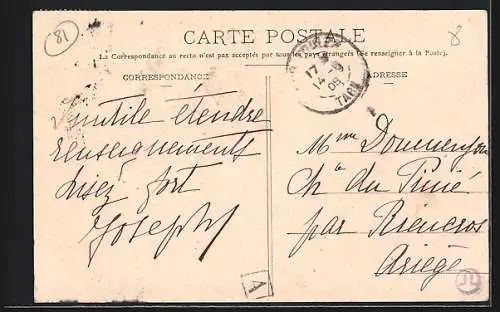 81
8
CARTE POSTALE
La Correspondance au recto n'est pas acceptée par tous les pays étrangers (Se renseigner à la Poste).
CORRESPONDANCE
ADRESSE
17
14 - 9
08
TARN
Inutile étendre
renseignements
disez fort
Joseph
Mme
Chau du Pinié
par Rieucros
Ariège
A
JL